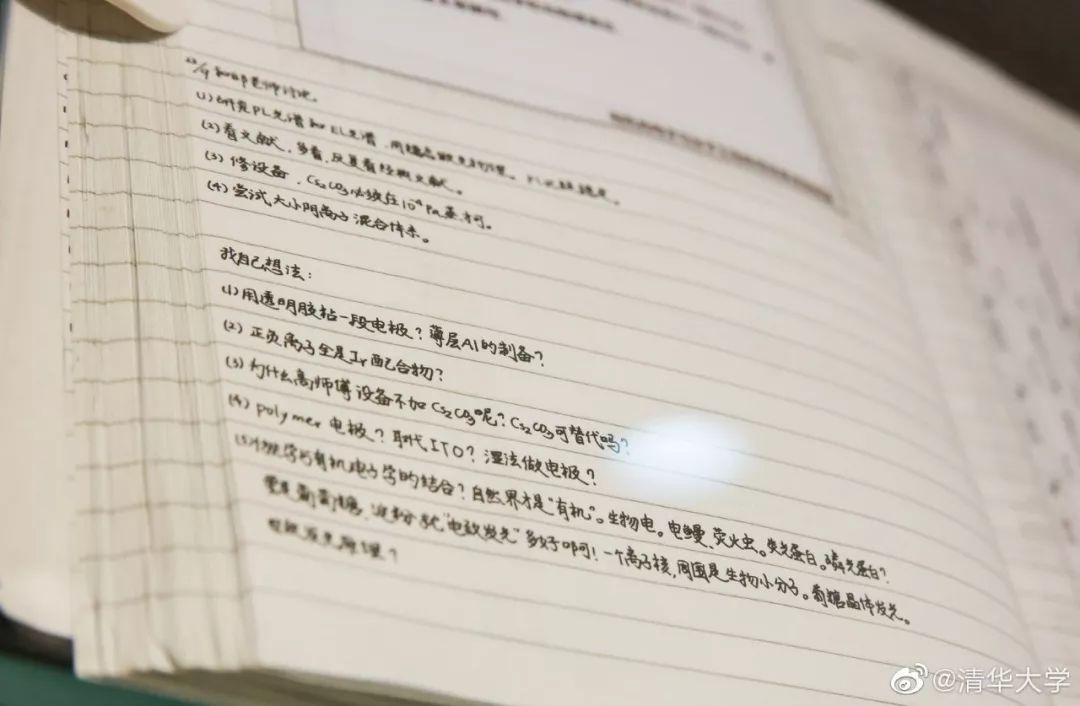 (1) 研究PL光谱和EL光谱,
(2) 看文献,多看,反复看经典文献。
(3) 修设备,Cs₂CO₃必须在10⁻⁴Pa蒸才可。
(4) 尝试大小阴离子混合体系。
我自己想法:
(1) 用透明胶粘一段电极?薄层Al的制备?
(2) 正负离子全是Ir配合物?
(3) 为什么高师傅设备不加Cs₂CO₃呢?Cs₂CO₃可替代吗?
(4) polymer电极?取代ITO?湿法做电极?
(5) 生物学与有机电子学的结合?自然界才是"有机"。生物电。电鳗、荧火虫。荧光蛋白。磷光蛋白?
要是葡萄糖、淀粉就"电致发光"多好啊!一个离子核,周围是生物小分子。葡糖晶体发光。
发光原理?
@清华大学